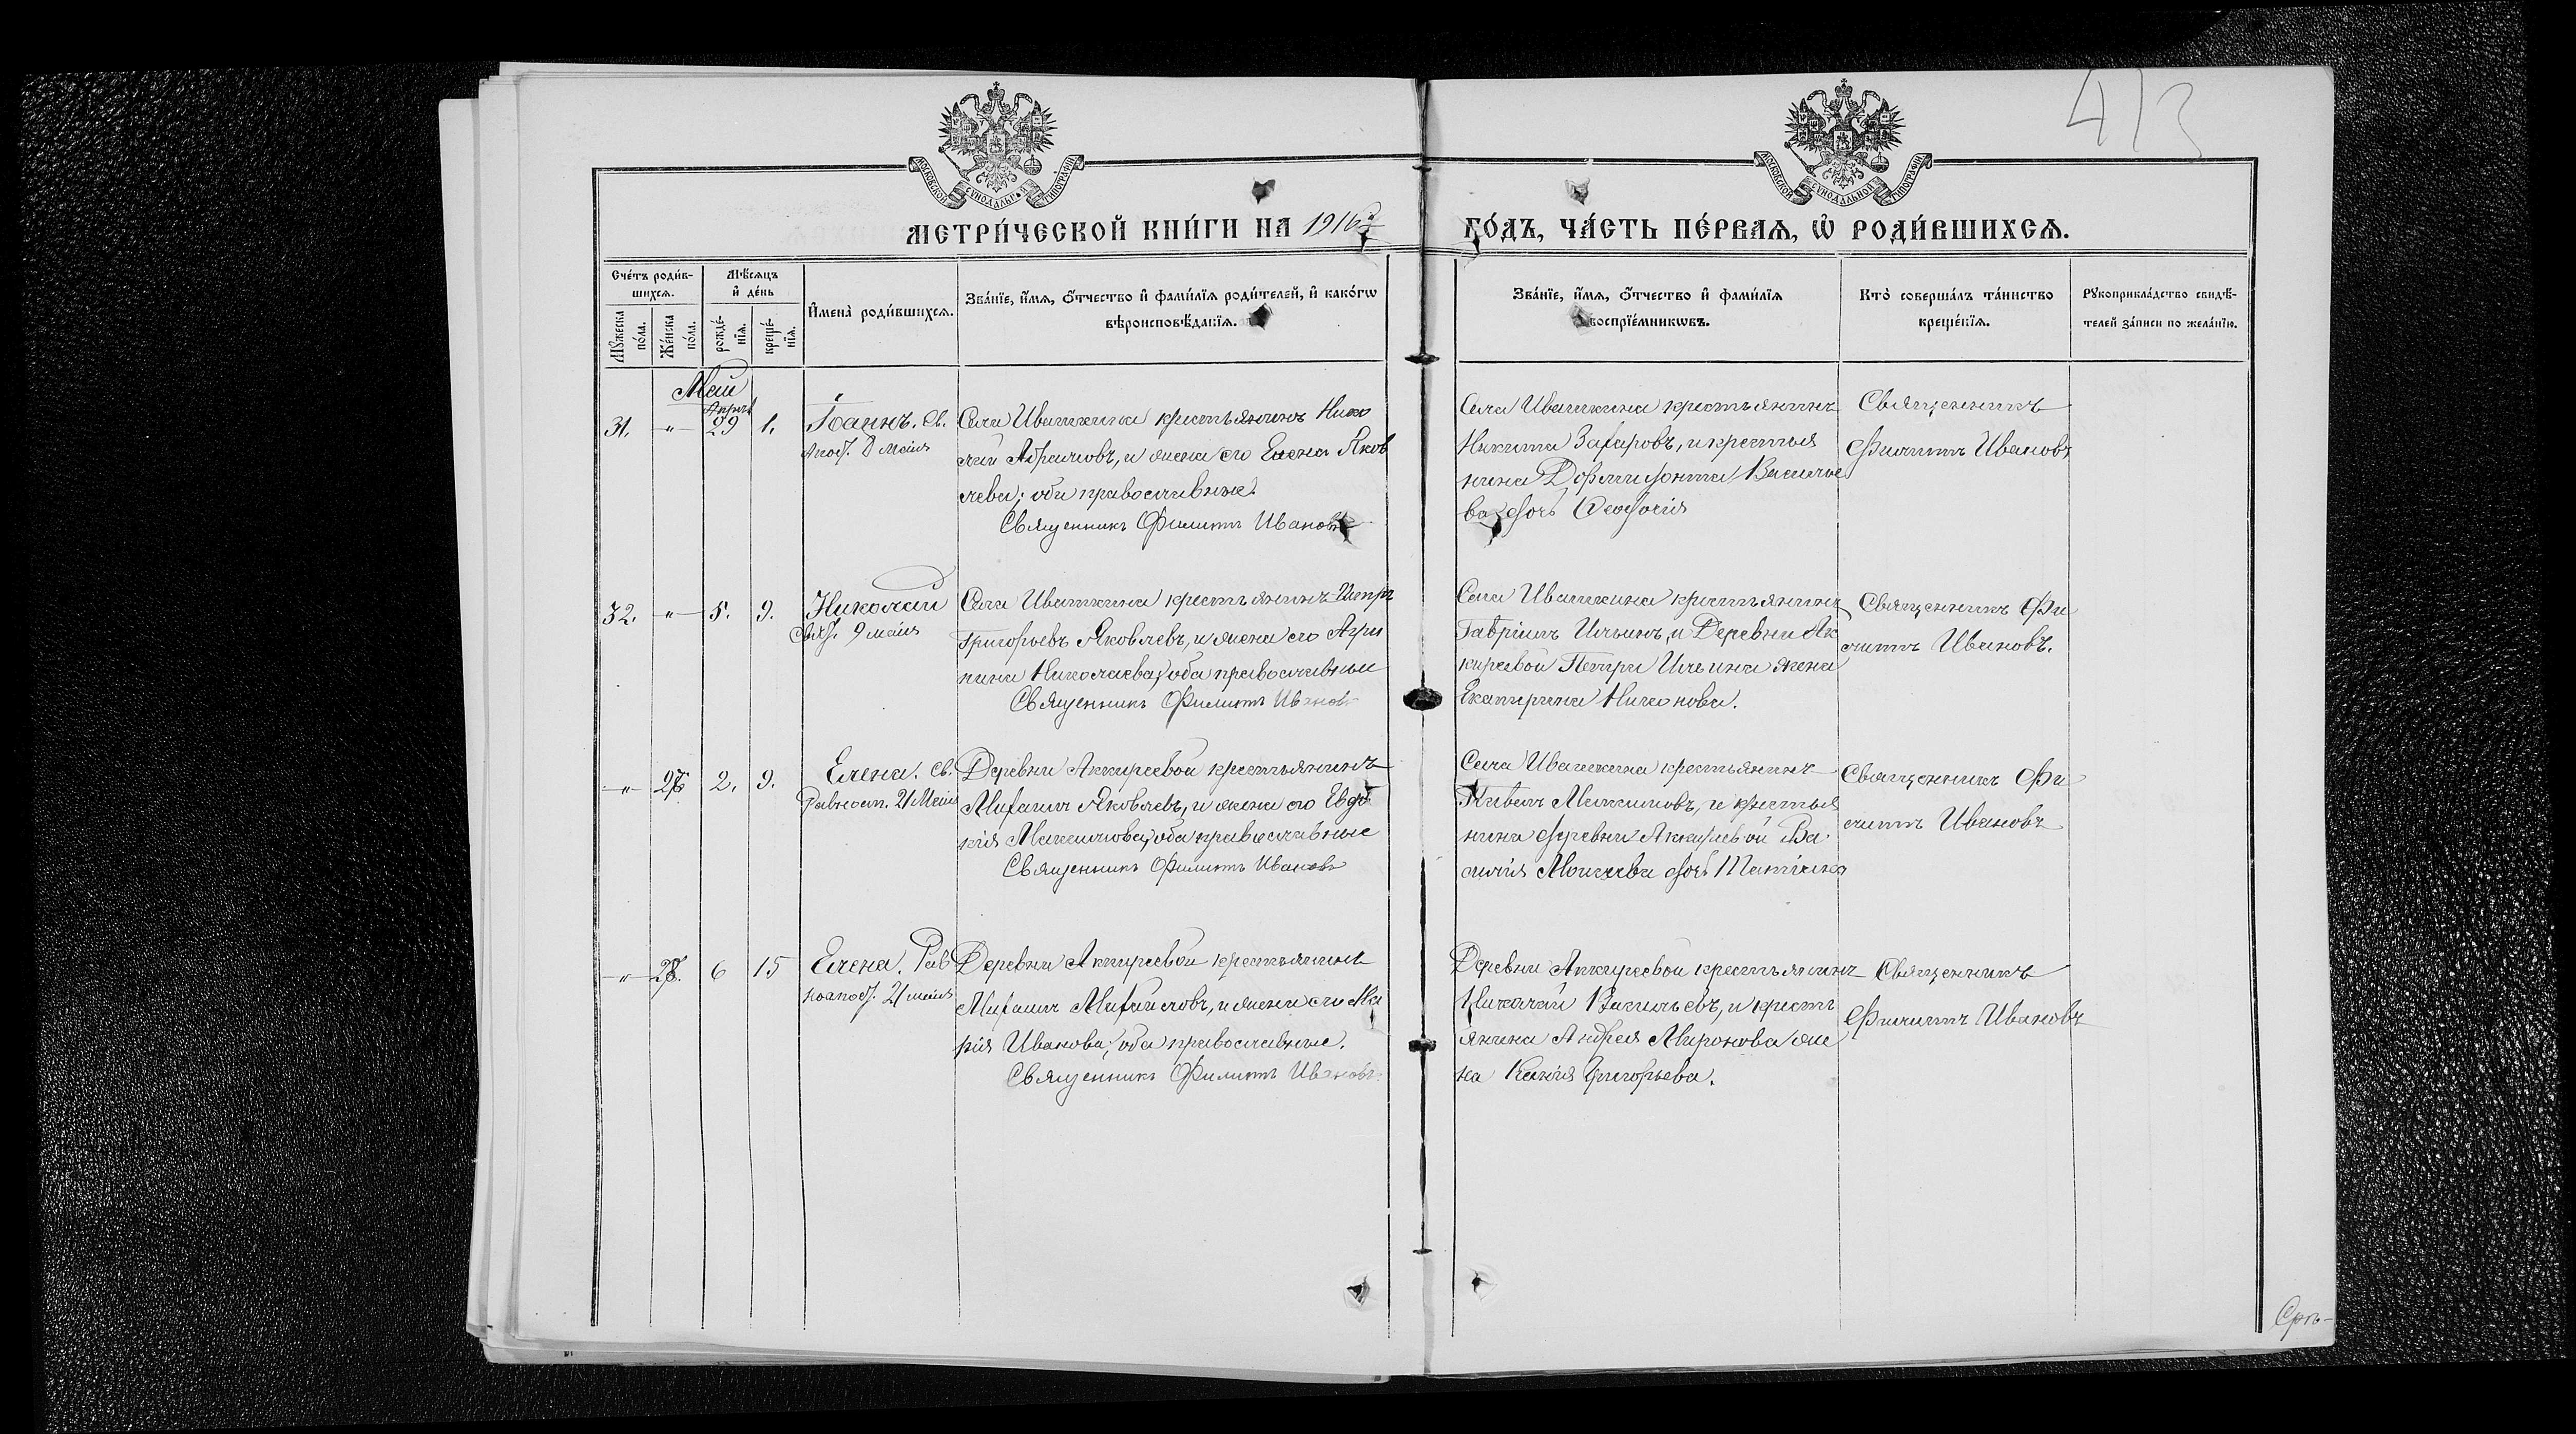 413
МОСКОВСКОЙ СѴНОДАЛЬН. ТИПОГРАФІИ
МОСКОВСКОЙ СѴНОДАЛЬНОЙ ТИПОГРАФІИ
МЕТРИ́ЧЕСКОЙ КНИ́ГИ НА 1916 й
ГО́ДЪ, ЧА́СТЬ ПЕ́РВАѦ, Ѽ РОДИ́ВШИХСѦ.
Сче́тъ роди́в-
шихсѧ.
Мꙋ́жеска по́ла.
Же́нска по́ла.
Мѣ́сѧцъ
и҆ де́нь
рожде́-нїѧ.
креще́-нїѧ.
И҆мена̀ роди́вшихсѧ.
Зва́нїе, и҆́мѧ, ѻ҆́тчество и҆ фами́лїѧ роди́телей, и҆ како́гѡ
вѣроисповѣ́данїѧ.
Зва́нїе, и҆́мѧ, ѻ҆́тчество и҆ фами́лїѧ
воспрїе́мникѡвъ.
Кто̀ соверша́лъ та́инство
креще́нїѧ.
Рꙋкоприкла́дство свидѣ́-
телей за́писи по жела́нїю.
Май
Апрѣл
31. " 29 1.
Іоаннъ. Св.
Апост. 8 мая
Села Ивашкина крестьянинъ Нико
лай Абрамовъ, и жена его Елена Яков
лева; оба православные.
Священникъ Филиппъ Ивановъ
Села Ивашкина крестьянинъ
Никита Захаровъ, и крестья
нина Васильe
ва дочь Ѳеодосія
Священникъ
Филиппъ Ивановъ
32. " 5. 9.
Николай
Свят. 9 мая
Села Ивашкина крестьянинъ Петръ
Григорьевъ Яковлевъ, и жена его Агри
пина Николаева; оба православные
Священникъ Филиппъ Ивановъ
Села Ивашкина крестьянинъ
Гавріилъ Ильинъ, и Деревни Ак
киреевой Петра Ильина жена
Екатерина
Священникъ Фи
липпъ Ивановъ.
" 27 2. 9.
Елена. Св.
Равноап. 21 Мая
Деревни Аккиреевой крестьянинъ
Михаилъ Яковлевъ, и жена его Евдо
кія Максимова; оба православные
Священникъ Филиппъ Ивановъ
Села Ивашкина крестьянинъ
Павелъ Максимовъ, и крестья
нина деревни Аккиреевой Ва
силія Моисеева дочь Татіана
Священникъ Фи
липпъ Ивановъ
" 28. 6 15
Елена. Рав
ноапост. 21 мая
Деревни Аккиреевой крестьянинъ
Михаилъ Михайловъ, и жена его Ма
рія Иванова; оба православные.
Священникъ Филиппъ Ивановъ.
Деревни Аккиреевой крестьянинъ
Николай Васильевъ, и кресть
янина Андрея Миронова же
на Ксенія Григорьева.
Священникъ
Филиппъ Ивановъ